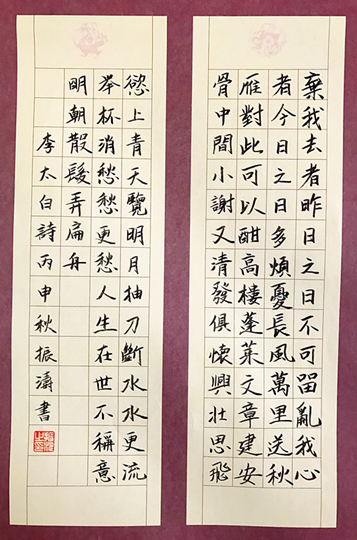 棄我去者昨日之日不可留亂我心
者今日之日多煩憂長風萬里送秋
雁對此可以酣高樓蓬萊文章建安
骨中間小謝又清發俱懷興壯思飛
慾上青天覽明月抽刀斷水水更流
举杯消愁愁更愁人生在世不稱意
明朝散髮弄扁舟
李太白詩丙申秋振濤書